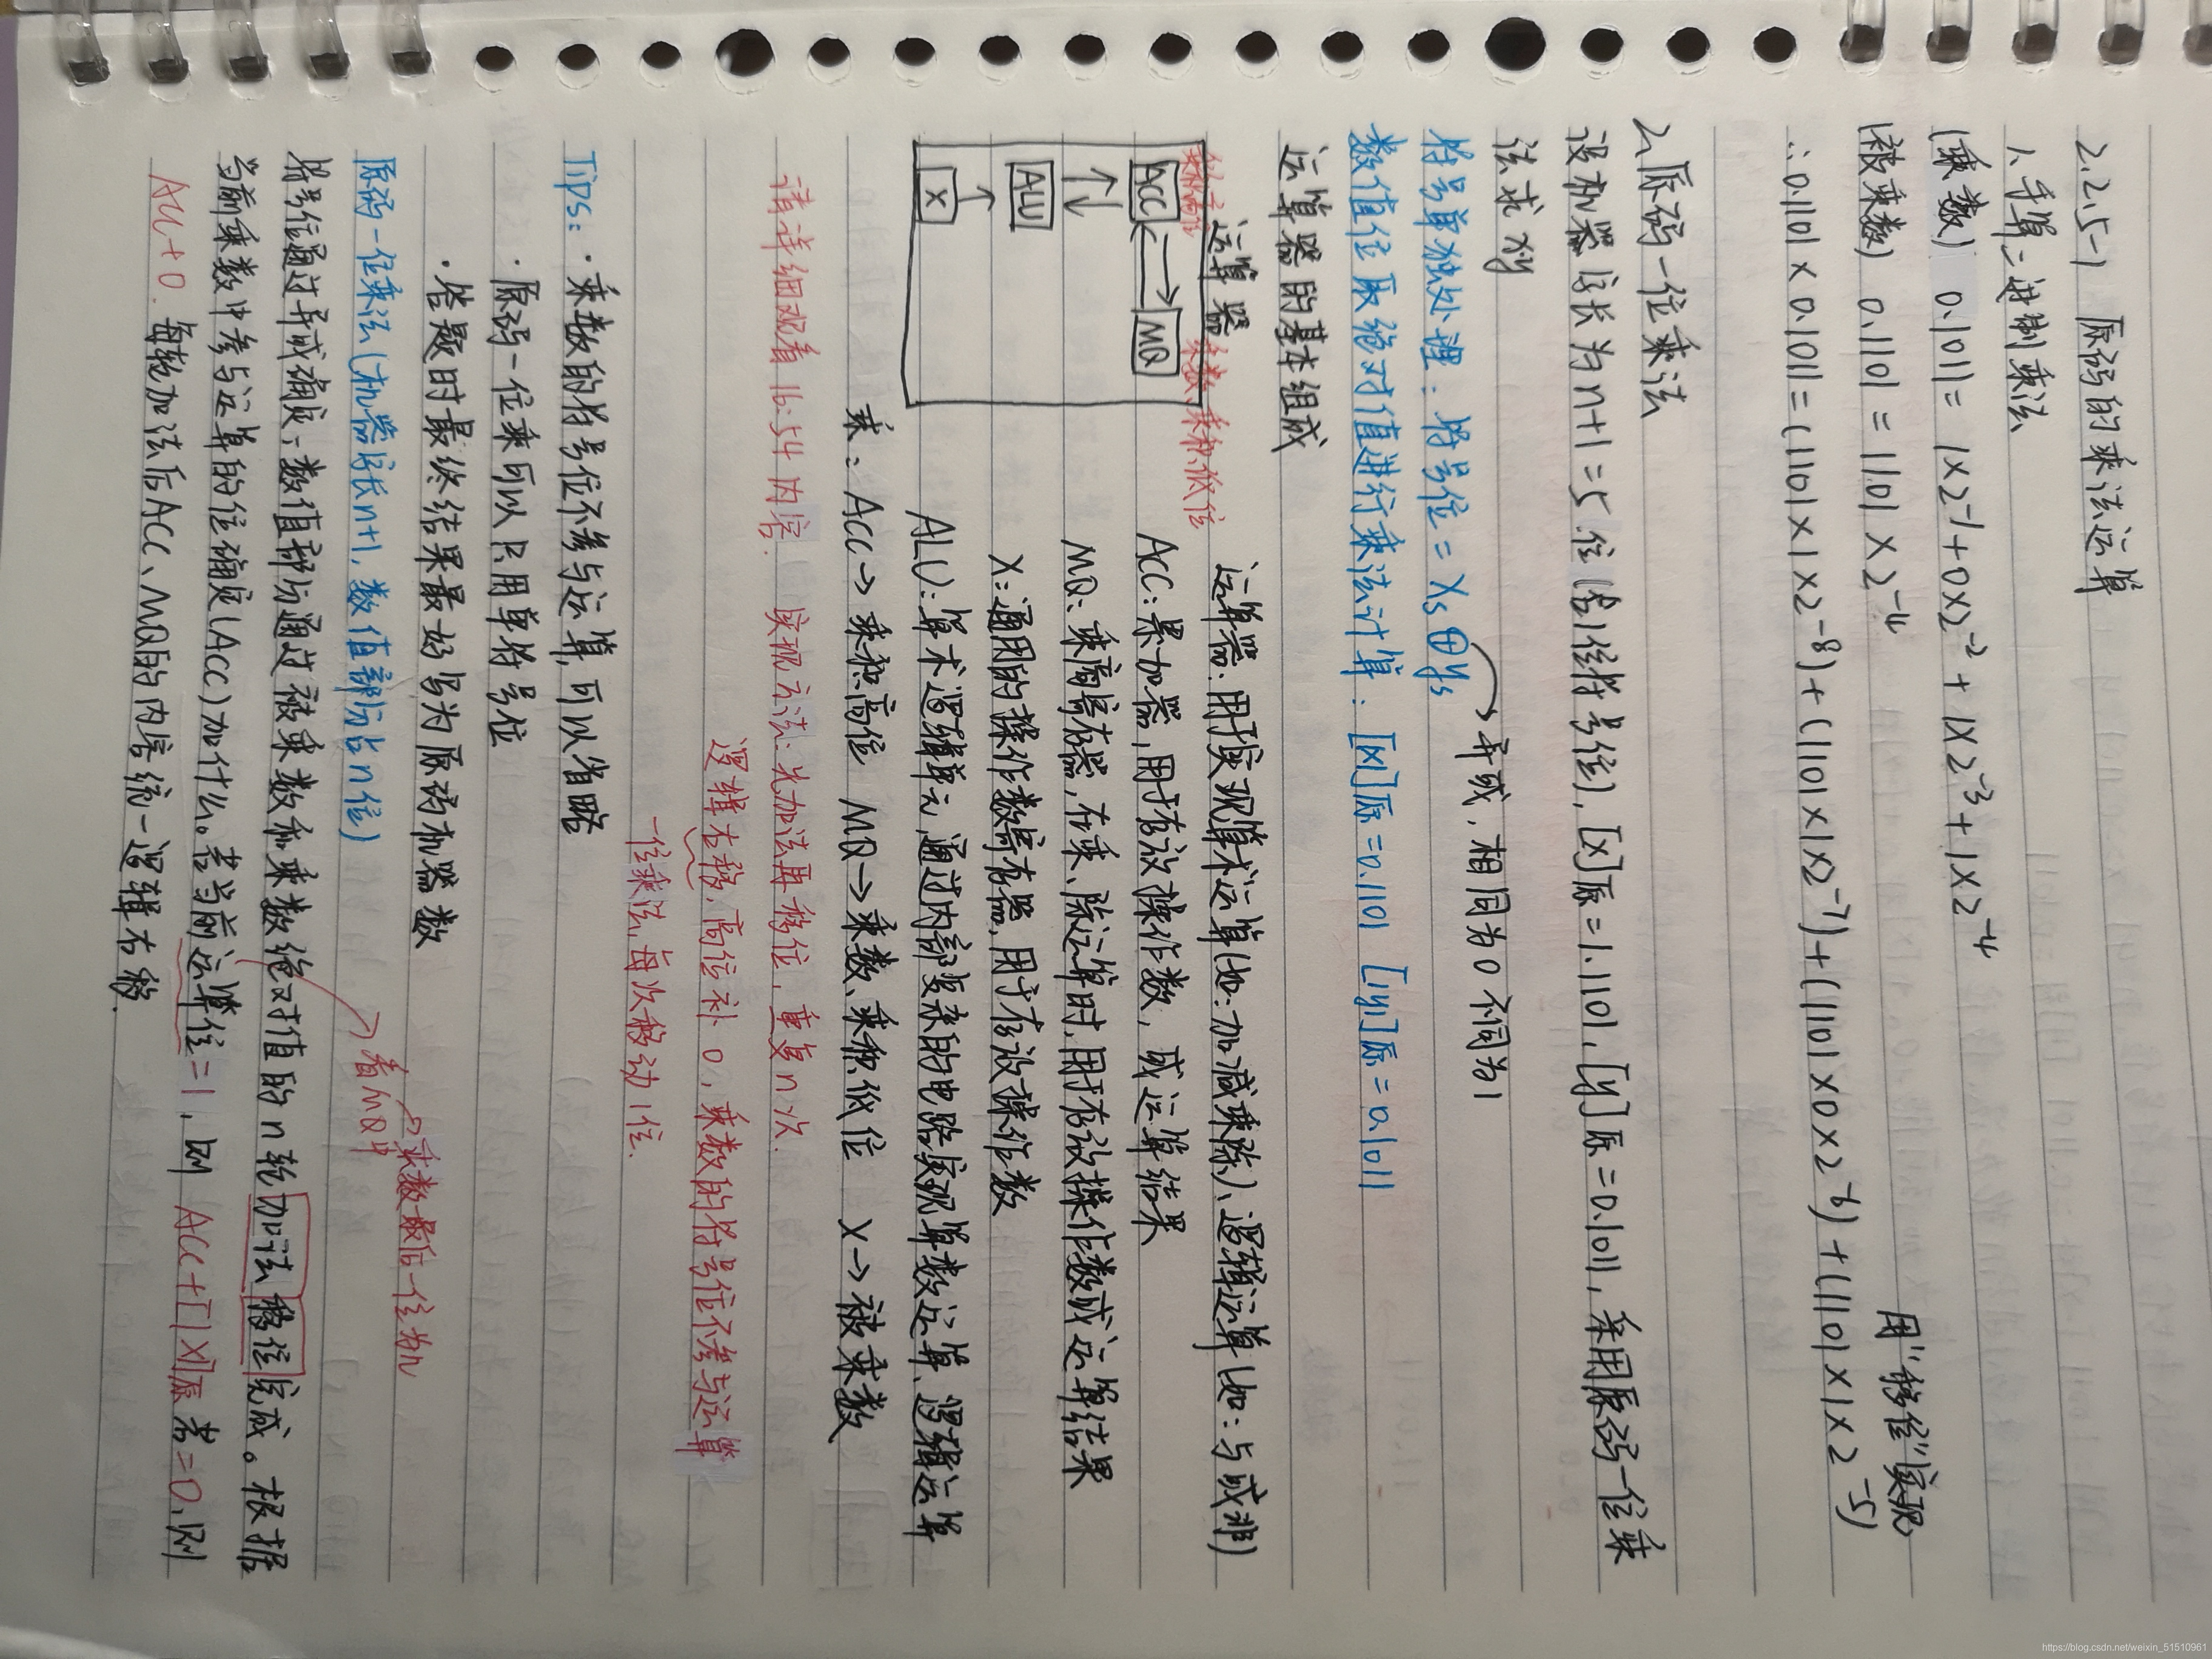 2.2.5-1 原码的乘法运算
1、手算二进制乘法
(乘数) 0.1011 = 1×2⁻¹+0×2⁻²+1×2⁻³+1×2⁻⁴
(被乘数) 0.1101 = 1101×2⁻⁴
用"移位"实现
∴ 0.1101×0.1011=(1101×1×2⁻⁸)+(1101×1×2⁻⁷)+(1101×0×2⁻⁶)+(1101×1×2⁻⁵)
2、原码一位乘法
设机器字长为n+1=5位(含1位符号位),[x]原=1.1101,[y]原=0.1011,采用原码一位乘
法求x·y
符号单独处理:符号位=Xs⊕ys
异或,相同为0不同为1
数值位取绝对值进行乘法计算:[|x|]原=0.1101 [|y|]原=0.1011
运算器的基本组成
运算器
乘积高位
乘数、乘积低位
ACC
MQ
ALU
X
运算器:用于实现算术运算(如:加减乘除)、逻辑运算(如:与或非)
ACC:累加器,用于存放操作数,或运算结果
MQ:乘商寄存器,在乘、除运算时,用于存放操作数或运算结果
X:通用的操作数寄存器,用于存放操作数
ALU:算术逻辑单元,通过内部复杂的电路实现算数运算、逻辑运算
乘:ACC→乘积高位 MQ→乘数、乘积低位 X→被乘数
请详细观看16:54内容. 实现方法:先加法再移位,重复n次.
逻辑右移,高位补0,乘数的符号位不参与运算
一位乘法,每次移动1位.
Tips:·乘数的符号位不参与运算,可以省略
·原码一位乘可以只用单符号位
·答题时最终结果最好写为原码机器数
乘数最后一位为n
原码一位乘法(机器字长n+1,数值部分占n位)
看MQ中
符号位通过异或确定;数值部分通过被乘数和乘数绝对值的n轮加法移位完成。根据
当前乘数中参与运算的位确定(ACC)加什么。若当前运算位=1,则ACC+[|x|]原 若=0,则
ACC+0.每轮加法后ACC、MQ的内容统一逻辑右移.
https://blog.csdn.net/weixin_51510961